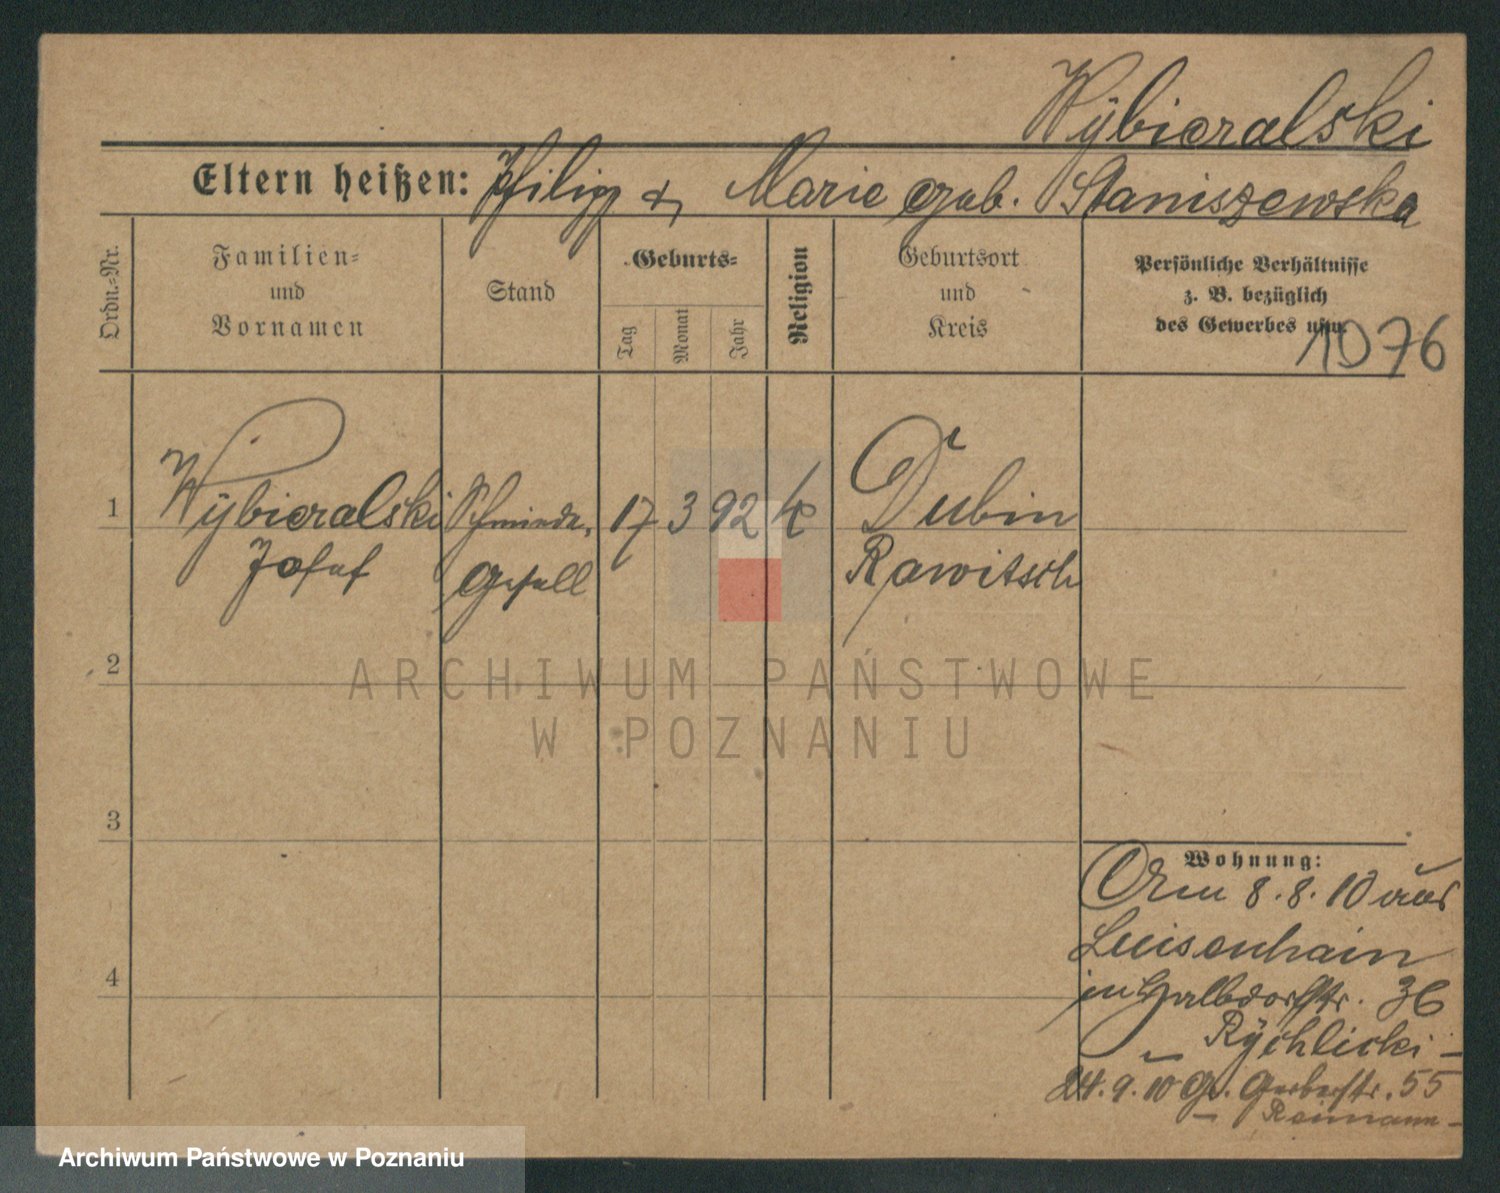 Wÿbieralski
Eltern heißen: Philipp & Marie geb. Staniszewska
Ordn.-Nr.
Familien-
und
Vornamen
Stand
Geburts-
Tag
Monat
Jahr
Religion
Geburtsort
und
Kreis
Persönliche Verhältnisse
z. B. bezüglich
des Gewerbes usw.
1076
1
Wÿbieralski
Josef
Schmiede-
Gesell
17
3
92
k
Dubin
Rawitsch
2
3
4
Wohnung:
8.8.10 aus
Luisenhain
in Halbdorfstr. 36
Rÿchlicki -
24.9.10 Gr. Gerberstr. 55
Reimann -
ARCHIWUM PAŃSTWOWE
W POZNANIU
Archiwum Państwowe w Poznaniu